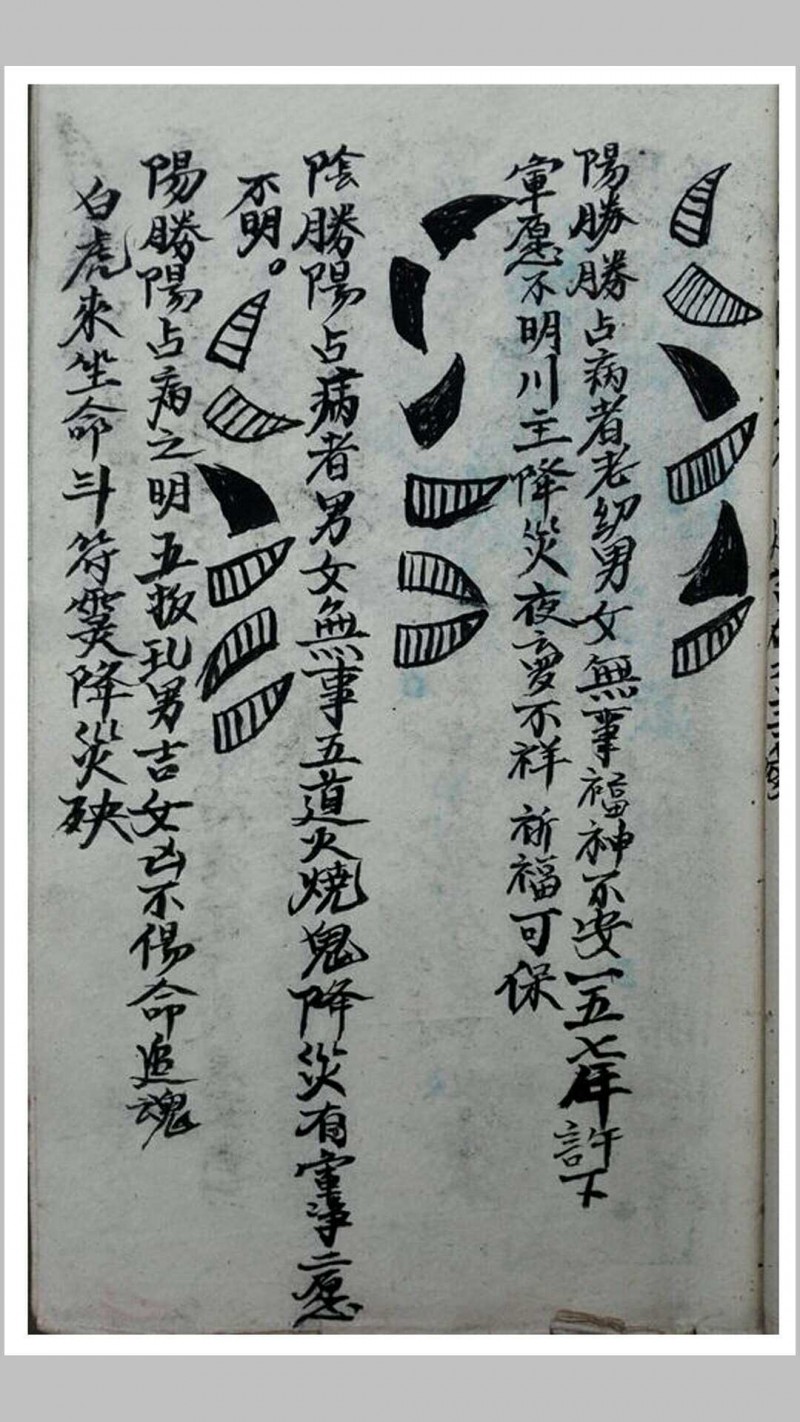 陽勝勝占病者老幼男女無事福神不安一五七年許下
愿不明川主降災夜夢不祥祈福可保
陰勝陽占病者男女無事五道火燒鬼降災有二愿
不明。
陽勝陽占病之明五男吉女凶不傷命追魂
白虎來坐命斗符灵降災殃